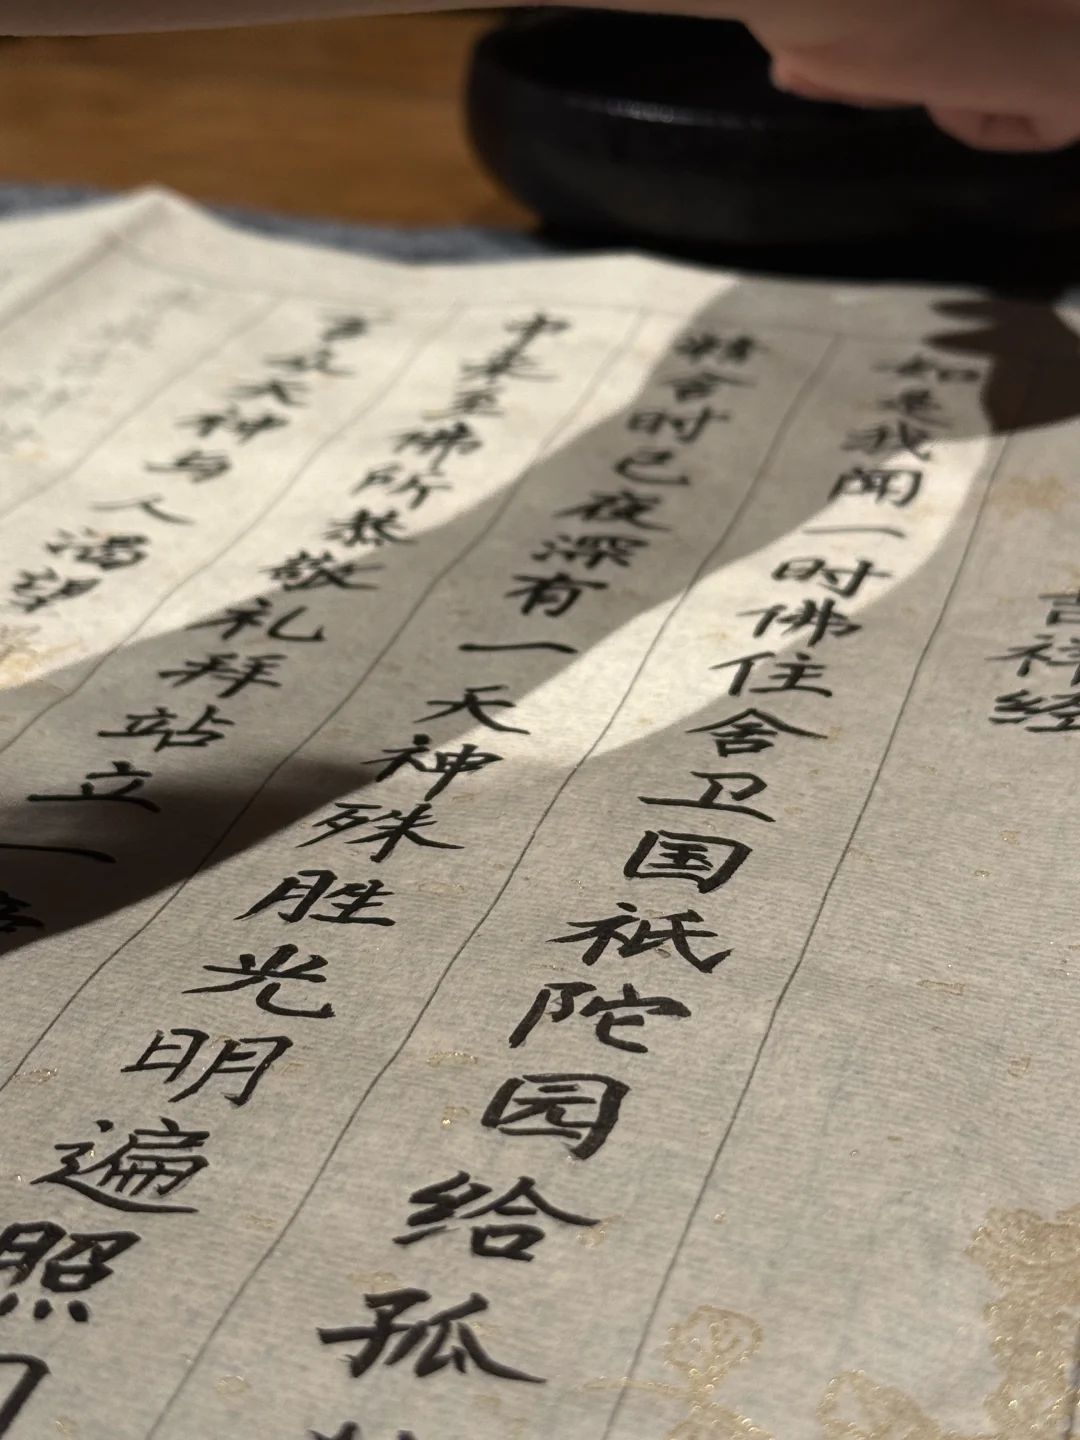 吉祥经
如是我闻一时佛住舍卫国祇陀园给孤
精舍时已夜深有一天神殊胜光明遍照
中来至佛所恭敬礼拜站立一
众天神与人渴望